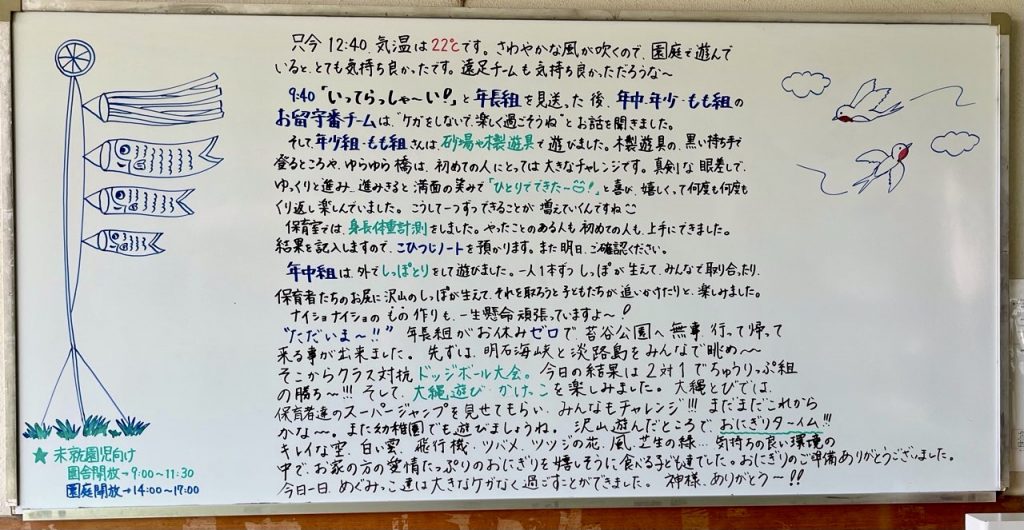 只今 12:40、気温は22℃です。さわやかな風が吹くので、園庭で遊んで
いると、とても気持ち良かったです。遠足チームも気持ち良かっただろうな〜
9:40「いってらっしゃ〜い!」と年長組を見送った後、年中・年少・もも組の
お留守番チームは、"ケガをしないで、楽しく過ごそうね"とお話を聞きました。
そして、年少組・もも組さんは、砂場や木製遊具で遊びました。木製遊具の、黒い持ち手で
登るところや、ゆらゆら橋は、初めての人にとっては大きなチャレンジです。真剣な眼差しで、
ゆっくりと進み、進みきると満面の笑みで「ひとりでできた〜😊!」と喜び、嬉しくって何度も何度も
くり返し楽しんでいました。こうして一つずつできることが増えていくんですね😊
保育室では、身長体重計測をしました。やったことのある人も初めての人も、上手にできました。
結果を記入しますので、こひつじノートを預かります。また明日、ご確認ください。
年中組は、外でしっぽとりをして遊びました。一人1本ずつしっぽが生えて、みんなで取り合ったり、
保育者たちのお尻に沢山のしっぽが生えて、それを取ろうと子どもたちが追いかけたりと、楽しみました。
ナイショナイショのもの作りも、一生懸命頑張っていますよ〜!
"ただいま〜!!" 年長組がお休みゼロで、苔谷公園へ無事行って帰って
来る事が出来ました。先ずは、明石海峡と淡路島をみんなで眺め〜〜
そこからクラス対抗ドッジボール大会。今日の結果は2対1でちゅうりっぷ組
の勝ち〜!!! そして、大縄遊び・かけっこを楽しみました。大縄とびでは、
保育者達のスーパージャンプを見せてもらい、みんなもチャレンジ!!! まだまだこれから
かな〜。また幼稚園でも遊びましょうね。沢山遊んだところで、おにぎりターイム!!!
キレイな空、白い雲、飛行機・ツバメ、ツツジの花、風、芝生の緑…気持ちの良い環境の
中で、お家の方の愛情たっぷりのおにぎりを嬉しそうに食べる子ども達でした。おにぎりのご準備ありがとうございました。
今日一日、めぐみっこ達は大きなケガなく過ごすことができました。神様、ありがとう〜!!
★未就園児向け
園舎開放→9:00〜11:30
園庭開放→14:00〜17:00